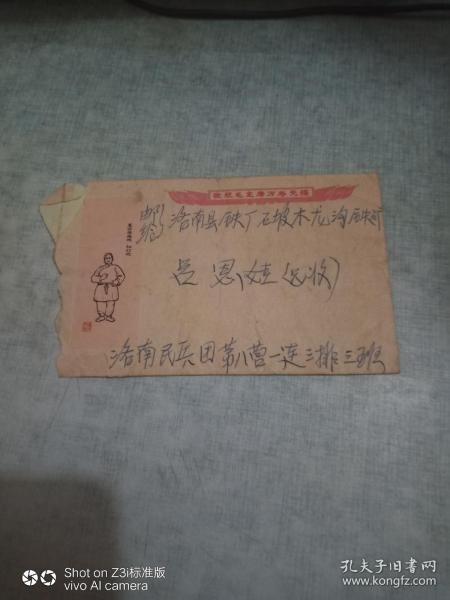 敬祝毛主席万寿无疆
邮给 洛南县铁厂石坡木龙沟铁矿
吕恩娃(收)
洛南民兵团第八营一连三排三班
Shot on Z3i标准版
vivo AI camera
孔夫子旧书网
www.kongfz.com